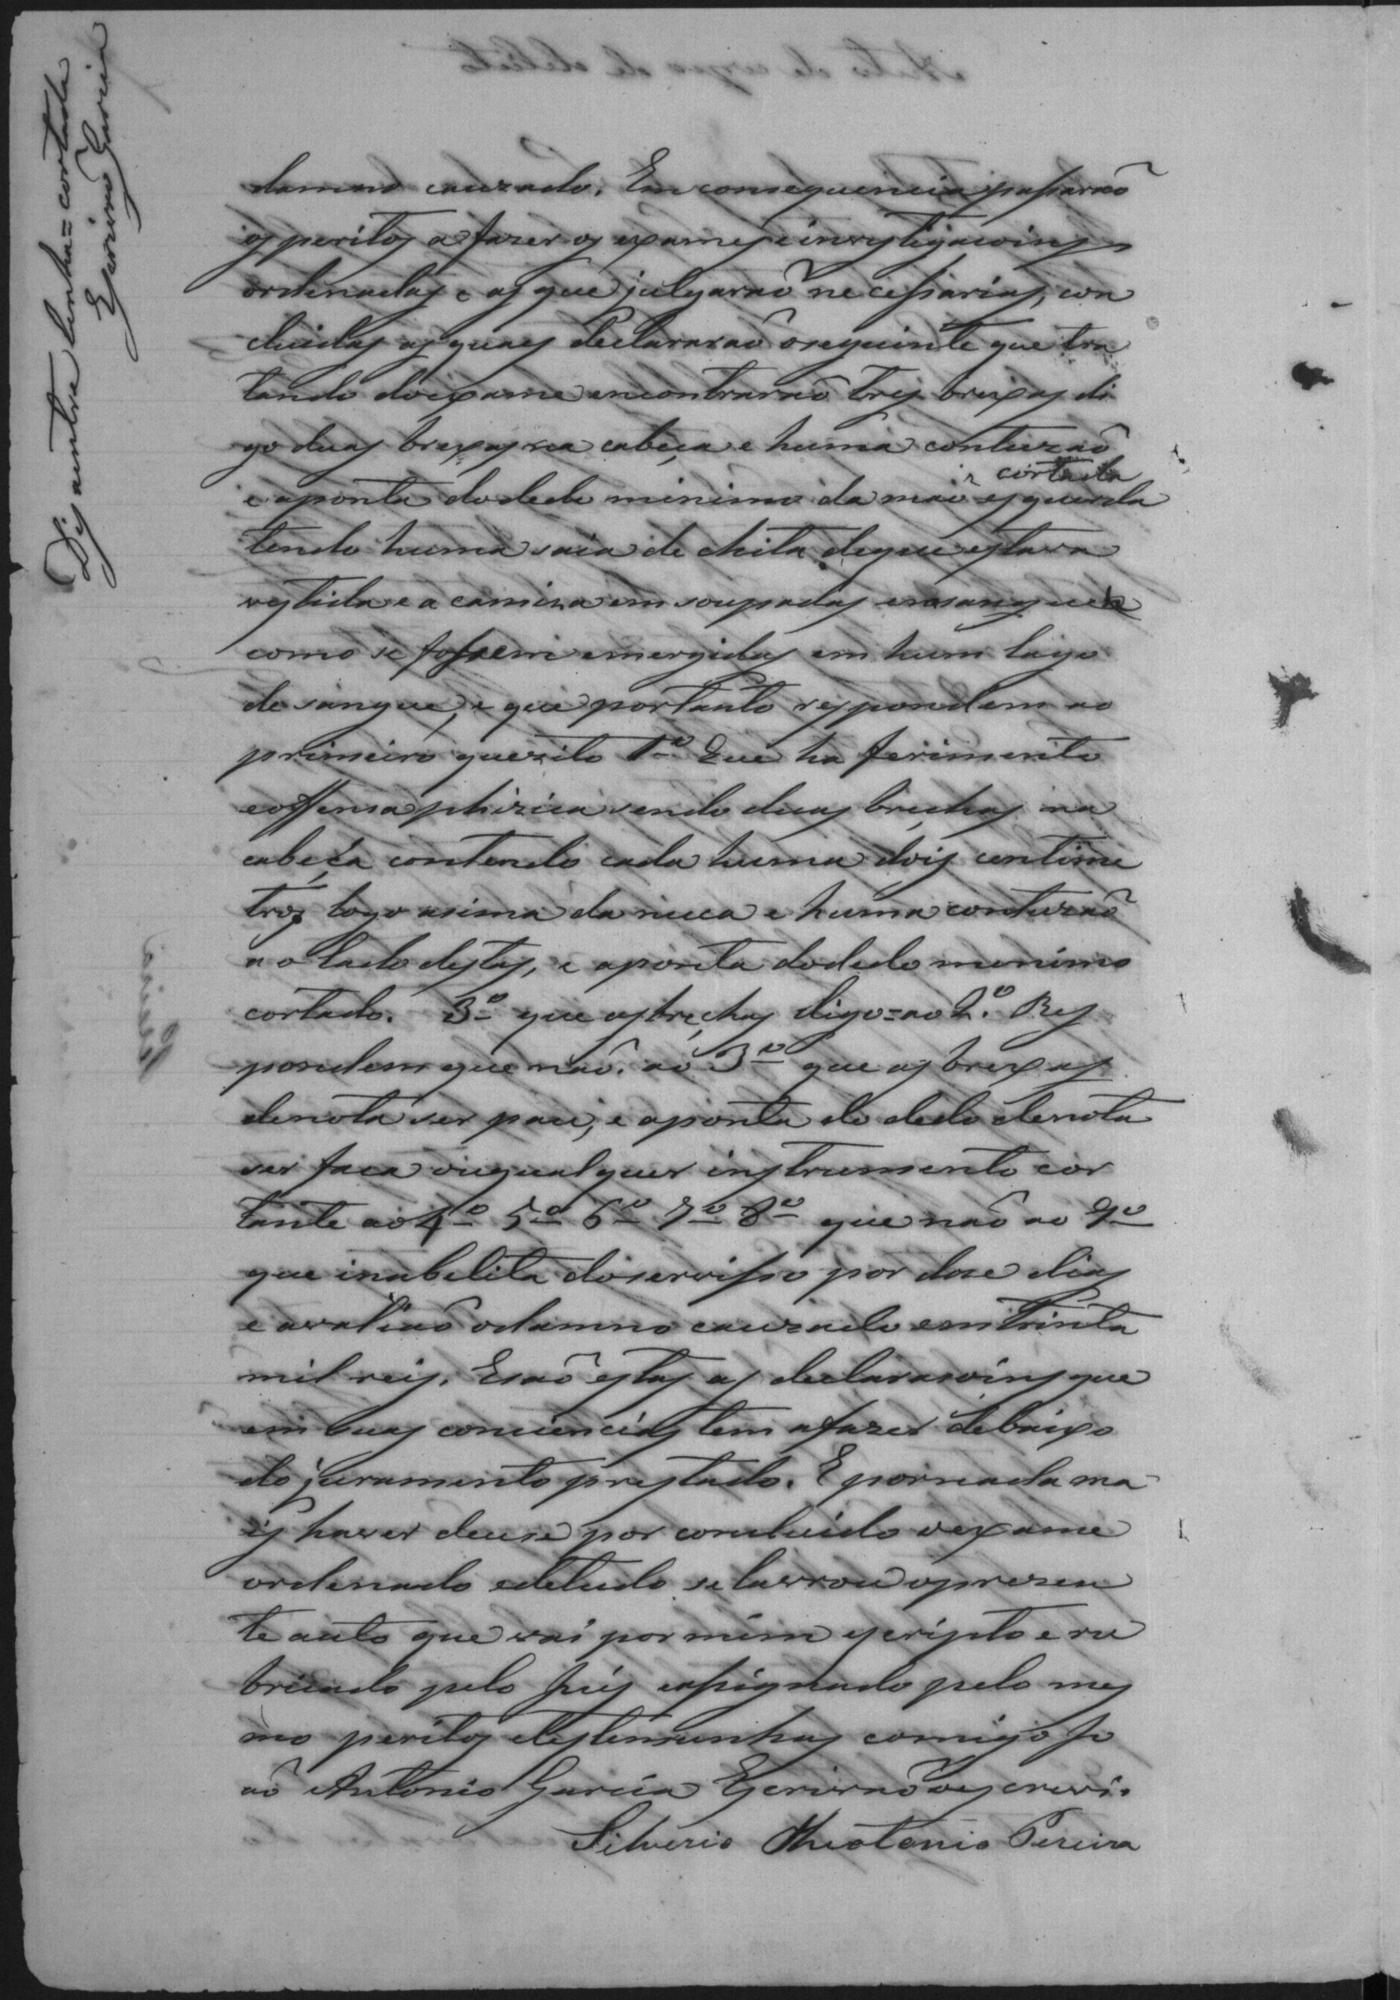 Dis aentre linha = cortada
Escrivaõ Garcia
damno cauzado. Em consequencia passaraõ
os peritos a fazer os exames einvestigacoins
ordenadas e as que julgaraõ necessarias, con
cluidas as quaes declararaõ oseguinte que tra
tando doixame encontraraõ tres brexas di
go duas brexas na cabeça e huma contuzaõ
cortada
e aponta dodedo minimo da maõ esquerda
tendo huma saia de chita deque estava
vestida e a camiza emsoupadas emsangue
como se fossem emergidas em hum lago
de sangue, e que portanto respondem ao
primeiro quezito 1º Que ha ferimento
eoffensa phizica sendo duas brechas na
cabeça contendo cada huma dois centime
tros logo asima da nuca e huma contuzaõ
ao lado destas, e aponta dodedo menimo
cortado. 3º que asbrechas digo = ao 2º. Res
pondem que naõ. ao 3º que as brexas
denota ser pau, e aponta do dedo denota
ser faca ouqualquer instrumento cor
tante ao 4º 5º 6º 7º 8º que naõ ao 9º
que inabelita doservisso por dose dias
e avaliaõ odamno cauzado em trinta
mil reis. Esaõ estas as declarasoins que
em suas conciencias tem afazer debaixo
do juramento prestado. E pornada ma
is haver deuse por concluido oexame
ordenado edetudo se lavrou oprezen
te auto que vai por mim escripto e ru
bricado pelo Juis eassignado pelo mes
mo peritos etestemunhas comigo Jo
aõ Antonio Garcia Escrivaõ oescrevi.
Silverio Theotonio Pereira